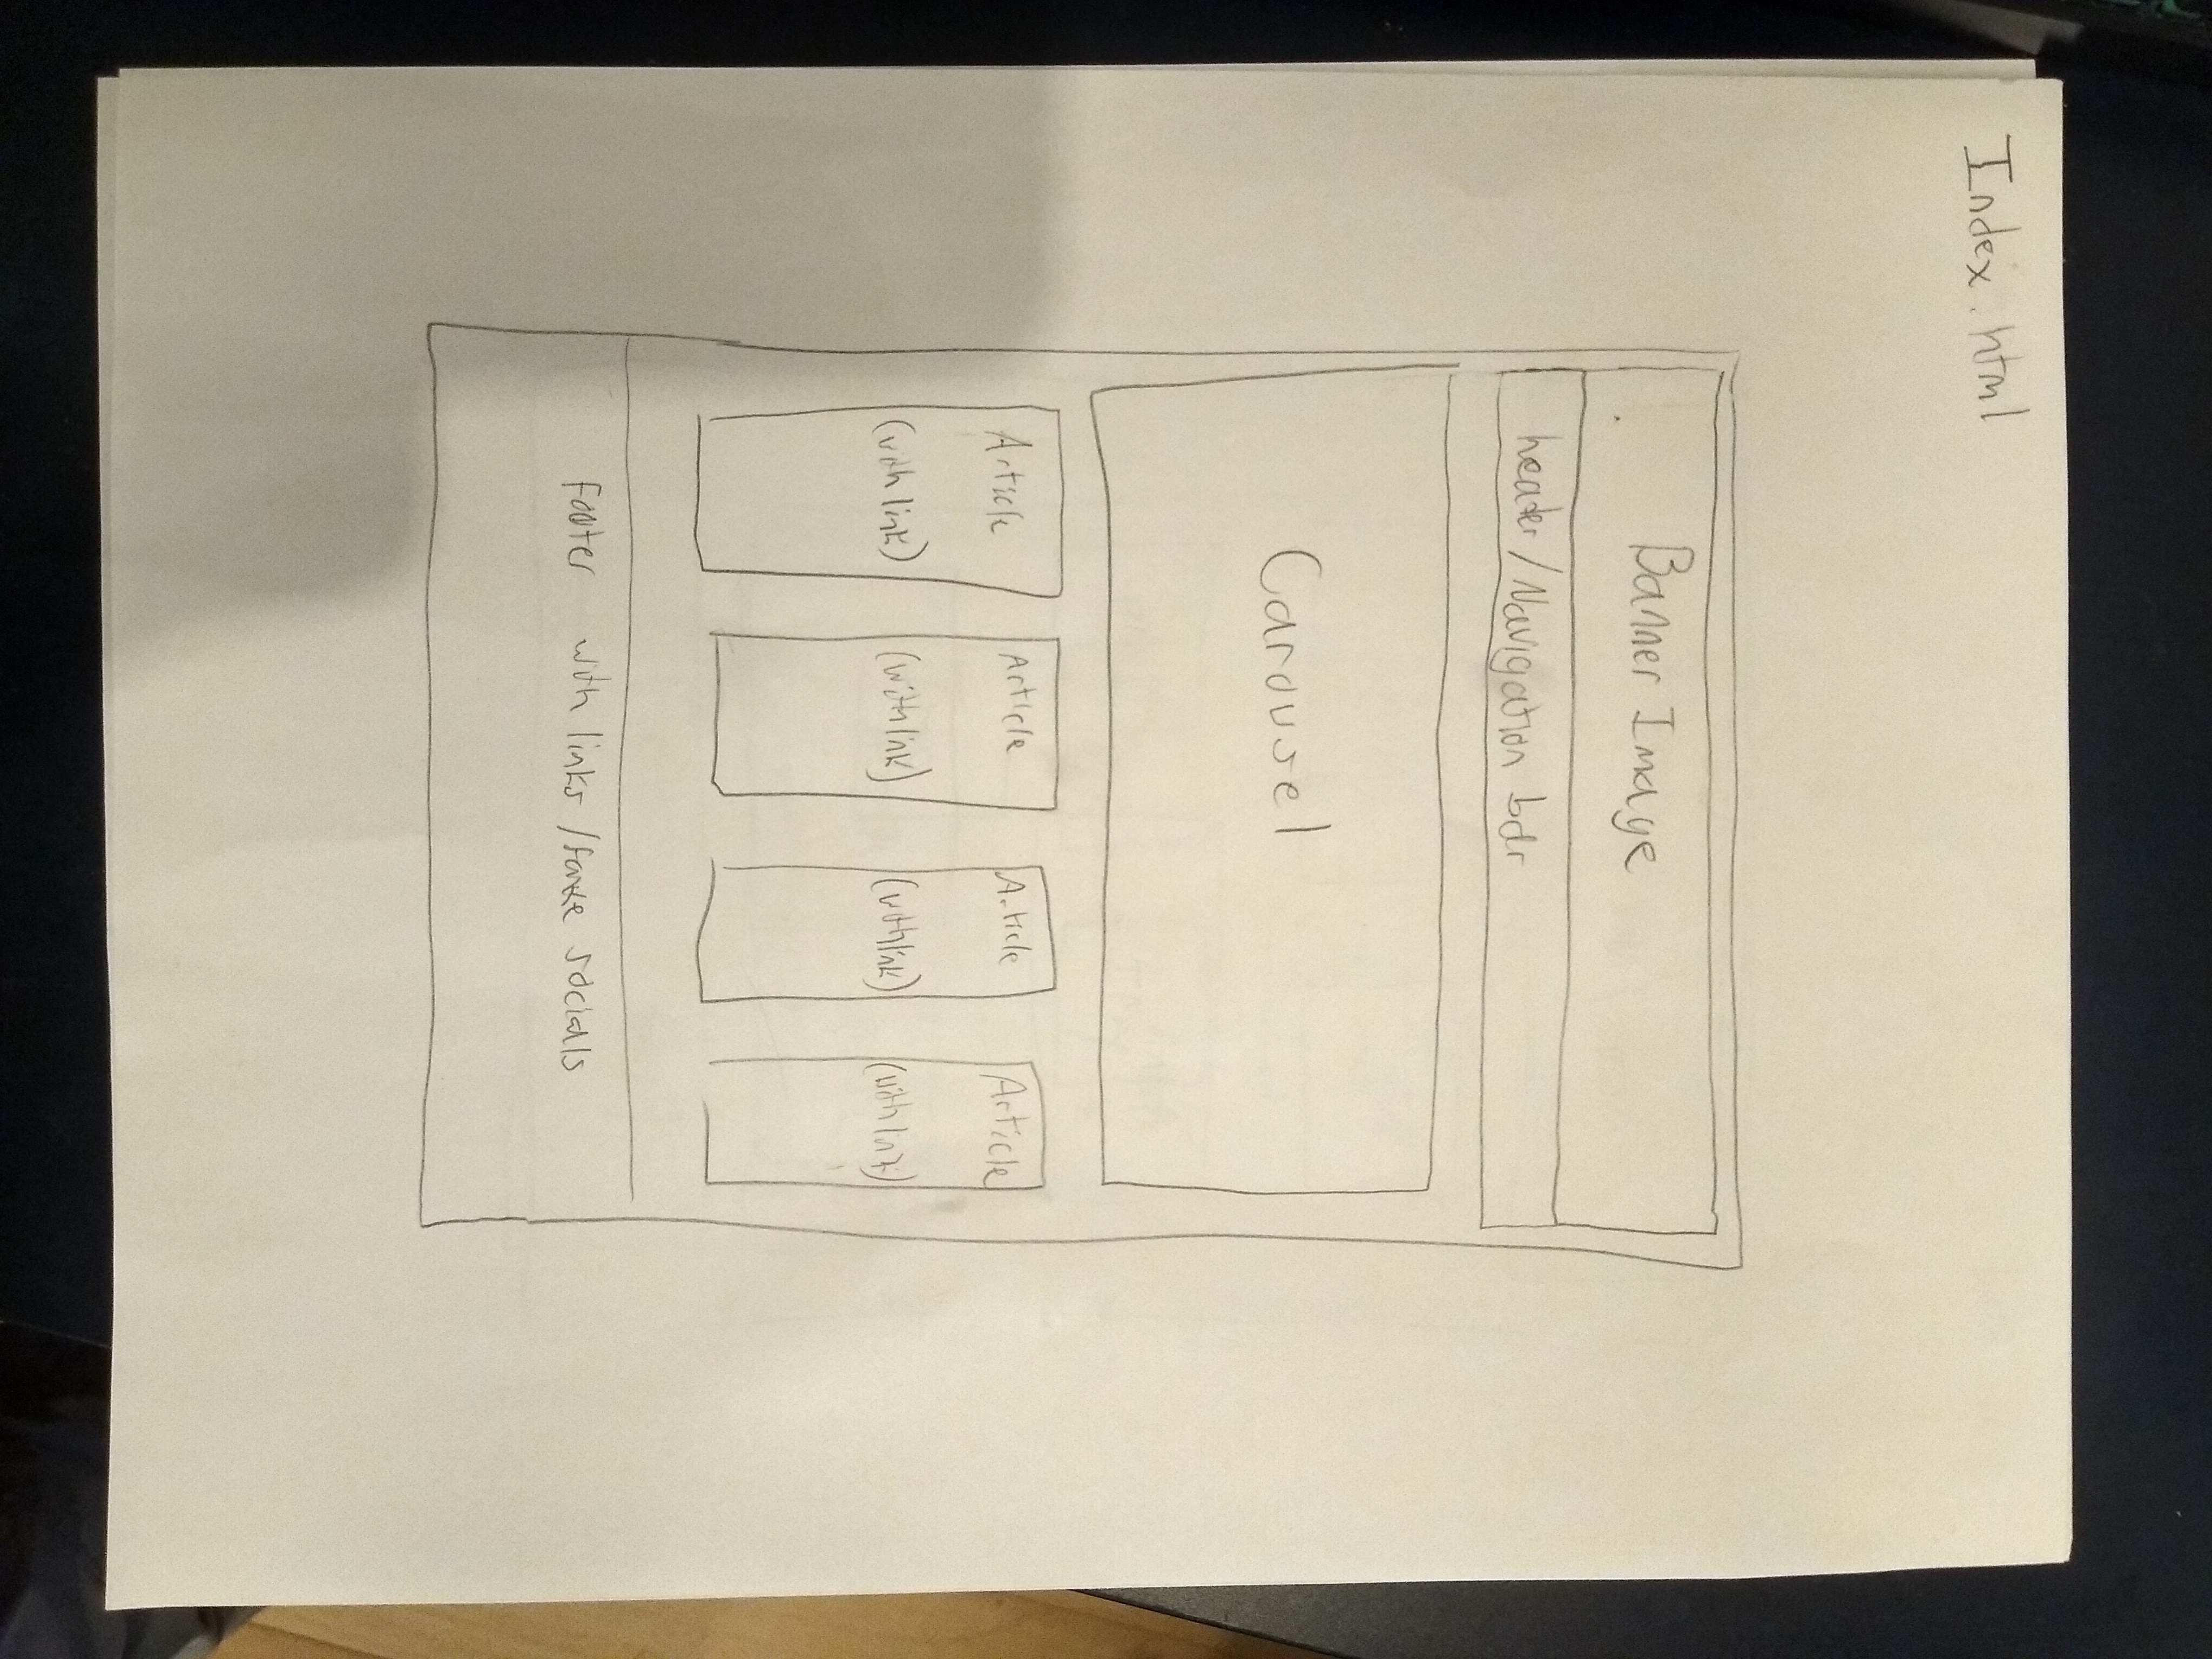 Index.html
Banner Image
header/Navigation bar
Carousel
Article Article Article Article
(with link) (with link) (with link) (with link)
Footer with links /fake socials